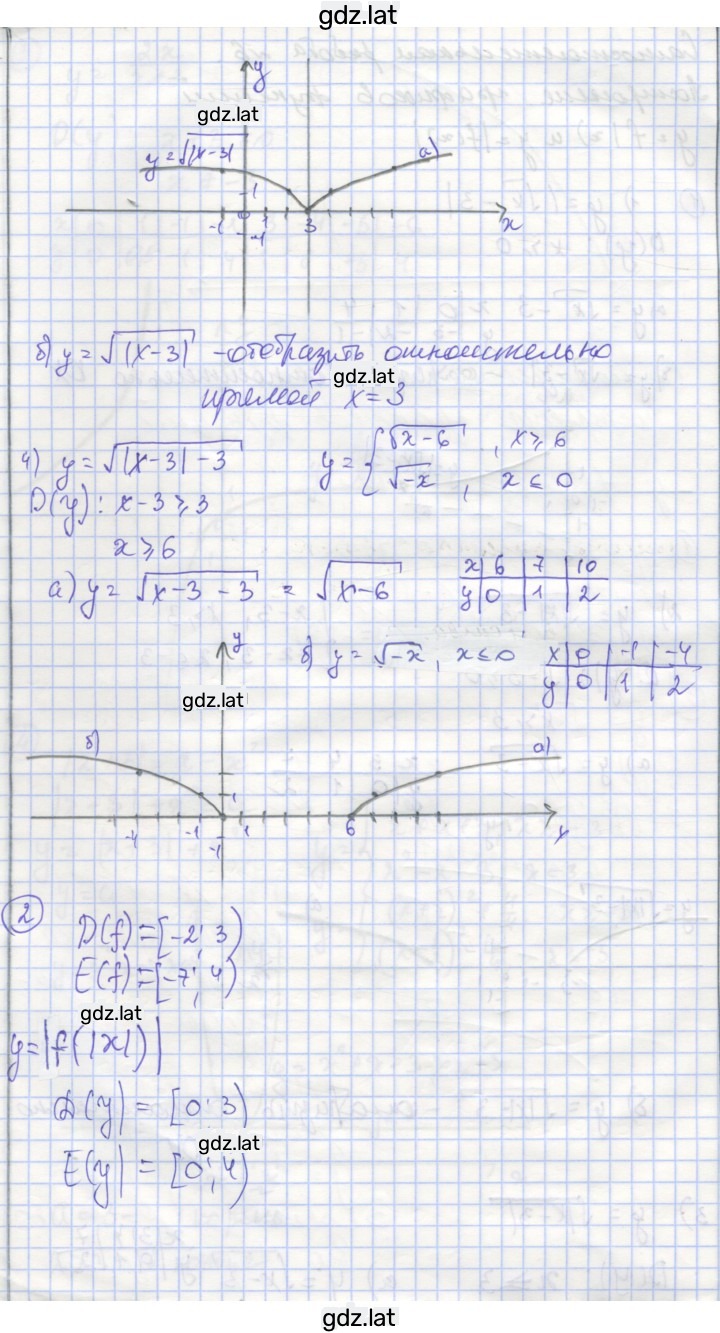 gdz.lat
y
gdz.lat
y = √|x-3|
а)
1
-1 0 1 3 x
-1
б) y = √|x-3| - отобразить относительно
gdz.lat
прямой x = 3
4) y = √|x-3|-3 y = { √x-6 , x ≥ 6
√-x , x ≤ 0
D(y): x-3 ≥ 3
x ≥ 6
а) y = √x-3-3 = √x-6
x | 6 | 7 | 10
y | 0 | 1 | 2
y
б) y = √-x, x ≤ 0
x | 0 | -1 | -4
y | 0 | 1 | 2
gdz.lat
б) а)
1
-4 -1 1 6 x
-1
2
D(f) = [-2; 3)
E(f) = [-7; 4)
gdz.lat
y = |f(|x|)|
D(y) = [0; 3)
gdz.lat
E(y) = [0; 4)
gdz.lat